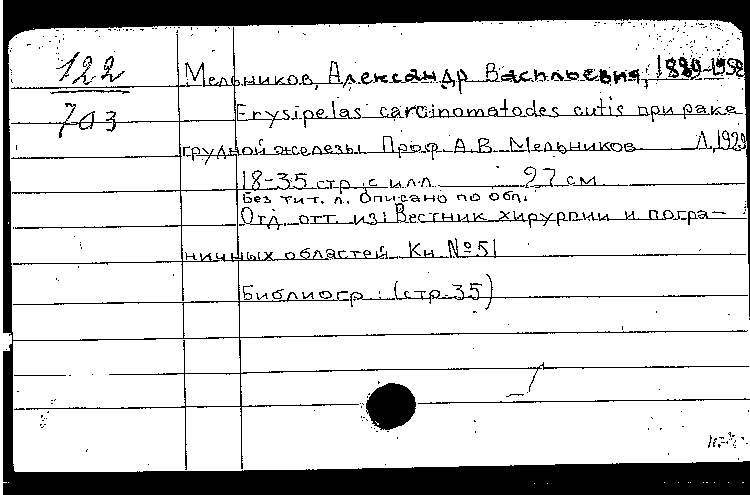 122
703
Мельников, Александр Васильевич, 1889-1958
Erysipelas carcinomatodes cutis при раке
грудной железы Проф. А.В. Мельников Л, 1929
18-35 стр. с илл. 27 см.
Без тит. л. Описано по обл.
Отд. отт. из: Вестник хирургии и погра-
ничных областей Кн. №51
Библиогр.: (стр. 35)